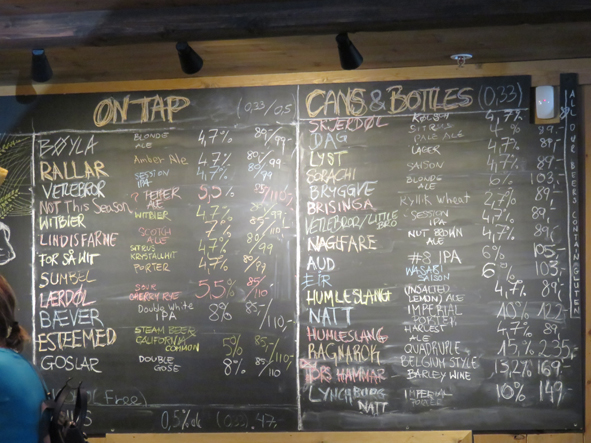 ON TAP (0,33/0,5)
BØYLA BLONDE ALE 4,7% 89/99,-
RALLAR Amber Ale 4,7% 89/99
VETLEBROR SESSION IPA 4,7%
NOT This Season ? BETTER ALE 5,5%
WITBIER WITBIER 4,7%
LINDISFARNE SCOTCH ALE
FOR SÅ WIT SITRUS KRYSTALLWIT 4,7%
SUMBEL PORTER 4,7% 89/99
LÆRDØL SOUR CHERRY RYE 5,5% 85/110,-
BÆVER Double White IPA 8% 85/110,-
ESTEEMED STEAM BEER CALIFORNIA COMMON 5% 85,-/110,-
GOSLAR DOUBLE GOSE 8% 85/110,-
Free)
0,5% alk 47,-
CANS & BOTTLES (0,33)
SKJERDØL KØLSCH 4,7%
DAG SITRUS PALE ALE 4% 89,-
LYST LAGER 4,7% 89,-
SORACHI SAISON 4,7% 89,-
BRYGGVE BLONDE ALE 103,-
BRISINGA Kyllik Wheat 2,7% 89,-
VETLEBROR/LITTLE BRO SESSION IPA 4,7% 89,-
NAGLFARE NUT BROWN ALE 4,7%
AUD #8 IPA 6% 105,-
EIR WASABI SAISON 6% 103,-
HUMLESLANGT (UNSALTED LEMON) ALE 4,7% 89,-
NATT IMPERIAL PORTER 10%
HUMLESLANG HARVEST ALE 4,7% 89,-
RAGNAROK QUADRUPLE 15,% 235,-
TORS HAMMAR BELGIUM STYLE BARLEY WINE 13,2% 169,-
LYNCHBURG NATT IMPERIAL PORTER 10% 149,-
ALL OUR BEERS CONTAIN GLUTEN